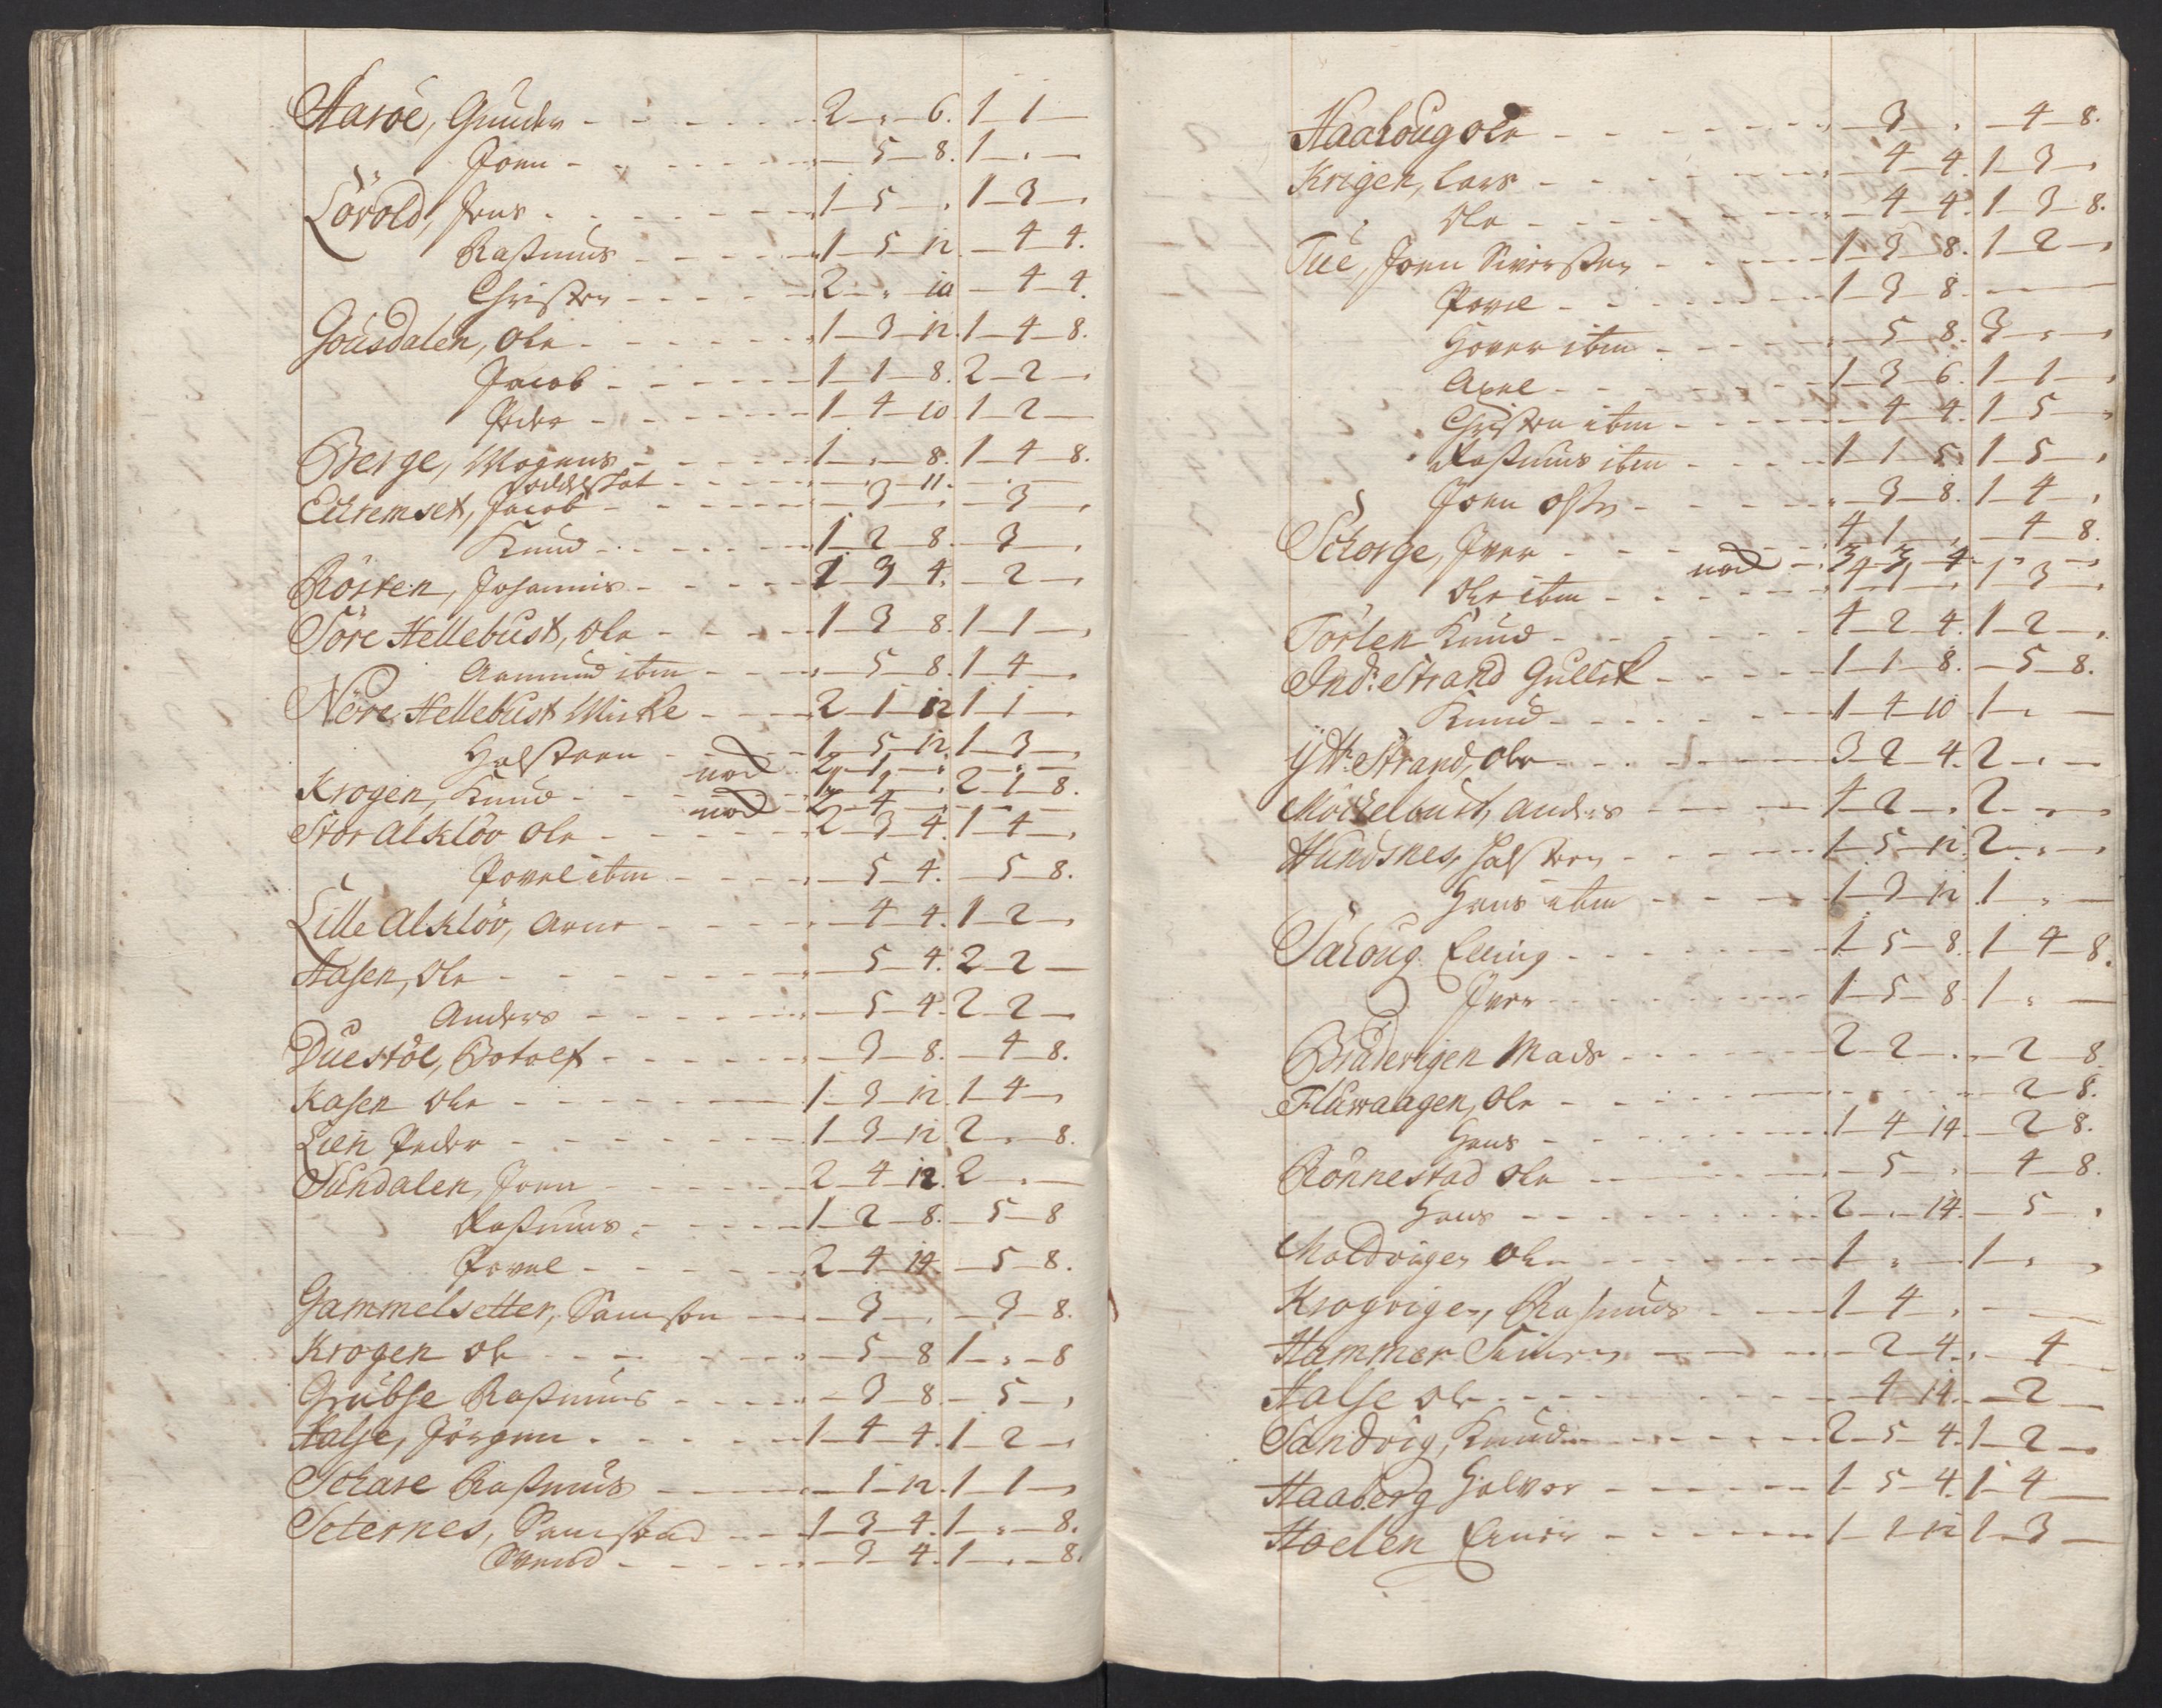 Haröe, Gunder - - - 2 - „ - 6. 1 - 1 -
Joen - - - „ - 5 - 8. 1 - „ -
Lövold, Jens - - - 1 - 5 - „ 1 - 3 - „
Rasmus - - - 1 - 5 - 12 - 4 - 4.
Christen - - - 2 - „ - 10 - 4 - 4.
Gousdalen, Ole - - - 1 - 3 - 12. 1 - 4 - 8.
Jacob - - - 1 - 1 - 8. 2 - 2 - „
Peder - - - 1 - 4 - 10. 1 - 2 -
Berge, Mogens - - - 1 - „ - 8. 1 - 4 - 8.
- - - 11.
Eckremset, Jacob - - - 3 - „ - 3 - „
Knud - - - 1 - 2 - 8. - 3 - „
Rösten, Johannis - - - 1 - 3 - 4. - 2 - „
Söre Hellebust, Ole - - - 1 - 3 - 8. 1 - 1 - „
Aamund ibm - - - „ - 5 - 8. 1 - 4 - „
Nöre Hellebust Micke - - - 2 - 1 - 12 1 - 1 - „
Halsteen - - - 1 - 5 - 12. 1 - 3 - „
nod 2 - 1 - „
Krogen, Knud - - - 1 - 1 - „ 2 - 1 - 8.
nod 2 - 4 -
Stor Alklöv Ole - - - 2 - 3 - 4. 1 - 4 - „
Povel ibm - - - „ - 5 - 4. - 5 - 8.
Lille Alklöv, Arne - - - „ - 4 - 4. 1 - 2 - „
Aasen, Ole - - - „ - 5 - 4. 2 - 2 -
Anders - - - „ - 5 - 4. 2 - 2 - „
Duestöl, Botolf - - - 3 - 8. - 4 - 8.
Kasen Ole - - - 1 - 3 - 12. 1 - 4 - „
Lien Peder - - - 1 - 3 - 12 2 - „ 8.
Sundalen, Joen - - - 2 - 4 - 12. 2 - „ -
Rasmus - - - 1 - 2 - 8. - 5 - 8
Povel - - - 2 - 4 - 14. - 5 - 8.
Gammelsetter, Samson - - - 3 - „ - 3 - 8.
Krogen Ole - - - „ - 5 - 8 1 - „ - 8
Grubse Rasmus - - - 3 - 8. - 5 - „
Halse, Jörgen - - - 1 - 4 - 4. 1 - 2 - „
Schare Rasmus - - - 1 - 12. 1 - 1 - „
Seternes, - - - 1 - 3 - 4. 1 - „ - 8.
Svend - - - 3 - 4. 1 - „ - 8.
Haahoug Ole - - - 3 - „ - 4 - 8.
Krigen, Lars - - - 4 - 4. 1 - 3 - „
Ole - - - 4 - 4. 1 - 3 - 8.
Tue, Joen Siversen - - - 1 - 3 - 8. 1 - 2 - „
Povel - - - 1 - 3 - 8. - -
ibm - - - 5 - 8. 3 - „ - „
Axel - - - 1 - 3 - 6. 1 - 1 - „
Christen ibm - - - 4 - 4. 1 - 5 - „
Rasmus ibm - - - 1 - 1 - 5. 1 - 5 - „
Joen Olsen - - - „ - 3 - 8. 1 - 4 - „
Schorge, Iver - - - 4 - 1 - „ - 4 - 8.
nod 3 - 3 - 4
Ole ibm - - - 4 - 1 - „ 1 - 3 - „
Torlen Knud - - - 4 - 2 - 4. 1 - 2 - „
Ind: Strand Gullik - - - 1 - 1 - 8. - 5 - 8.
Knud - - - 1 - 4 - 10 1 - „ -
ÿtt: Strand, Ole - - - 3 - 2 - 4. 2 - „ -
Möckelbust, Anders - - - 1 - 2 - „ 2 - „ - „
Hundsnes, Halsten - - - 1 - 5 - 12. 2 - „ - „
Hans ibm - - - 1 - 3 - 12 1 - „ -
Sahoug Elling - - - 1 - 5 - 8. 1 - 4 - 8.
Iver - - - 1 - 5 - 8. 1 - „ -
Bruderigen Mads - - - 2 - 2 - „ - 2 - 8
Fluwaagen, Ole - - - 2 - 8.
Hans - - - 1 - 4 - 14. - 2 - 8.
Rönnestad Ole - - - 5 - „ - 4 - 8.
Hans - - - 2 - „ - 14. - 5 - „
Moldvigen Ole - - - 1 - „ - 1 - „ - „
Krogvigen, Rasmus - - - 1 - 4 - „ - -
Hammer Simen - - - 2 - 4. - 4 -
Halse Ole - - - 4 - 14. - 2 -
Sandvig, Knud - - - 2 - 5 - 4. 1 - 2 - „
Haaberg Halvor - - - 1 - 5 - 4. 1 - 4 -
Hoelen Einer - - - 1 - 1 - 12 1 - 3 -